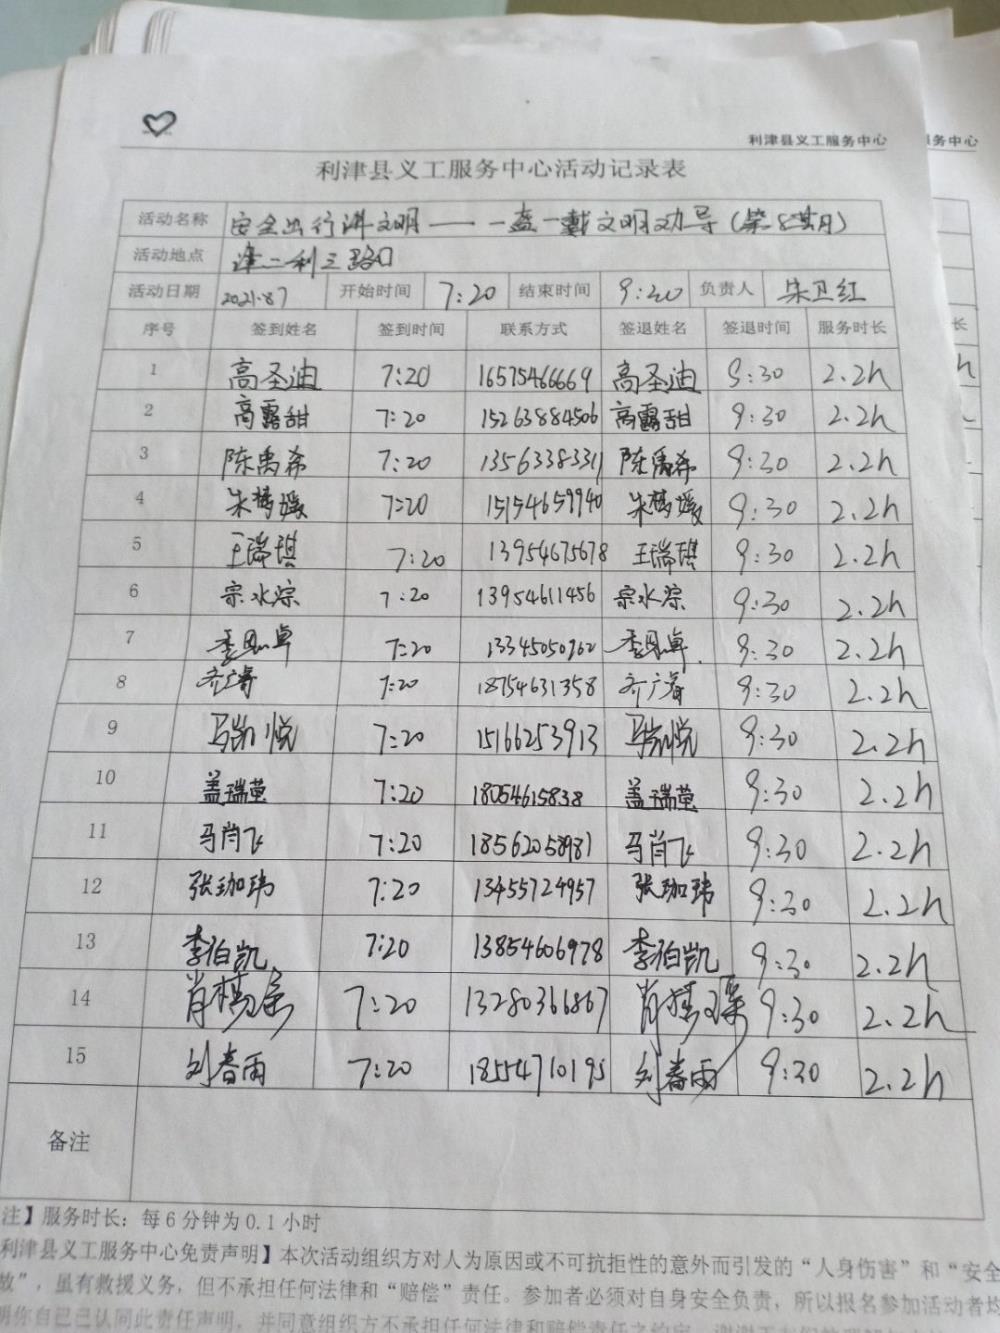 利津县义工服务中心
服务中心
利津县义工服务中心活动记录表
活动名称 安全出行讲文明——一盔一戴文明劝导(第8期)
活动地点 津二利三路口
活动日期 2021.8.7 开始时间 7:20 结束时间 9:30 负责人 宋卫红
序号 签到姓名 签到时间 联系方式 签退姓名 签退时间 服务时长
1 高圣迪 7:20 16575466669 高圣迪 9:30 2.2h
2 高露甜 7:20 15263884506 高露甜 9:30 2.2h
3 陈禹希 7:20 13563383311 陈禹希 9:30 2.2h
4 朱梦媛 7:20 15154659940 朱梦媛 9:30 2.2h
5 王瑞琪 7:20 13954675678 王瑞琪 9:30 2.2h
6 宗水淙 7:20 13954611456 宗水淙 9:30 2.2h
7 李思卓 7:20 13345050962 李思卓 9:30 2.2h
8 齐广睿 7:20 18754631358 齐广睿 9:30 2.2h
9 马凯悦 7:20 15166253913 马凯悦 9:30 2.2h
10 盖瑞萱 7:20 18054615838 盖瑞萱 9:30 2.2h
11 马肖飞 7:20 18562058981 马肖飞 9:30 2.2h
12 张珈玮 7:20 13455724957 张珈玮 9:30 2.2h
13 李伯凯 7:20 13854606978 李伯凯 9:30 2.2h
14 7:20 13280366867 9:30 2.2h
15 刘春雨 7:20 18554710195 刘春雨 9:30 2.2h
备注
注】服务时长：每6分钟为0.1小时
利津县义工服务中心免责声明】本次活动组织方对人为原因或不可抗拒性的意外而引发的“人身伤害”和“安全
故”，虽有救援义务，但不承担任何法律和“赔偿”责任。参加者必须对自身安全负责，所以报名参加活动者均
明你自己已认同此责任声明，并同意组织方不承担任何法律和赔偿责任之约定。